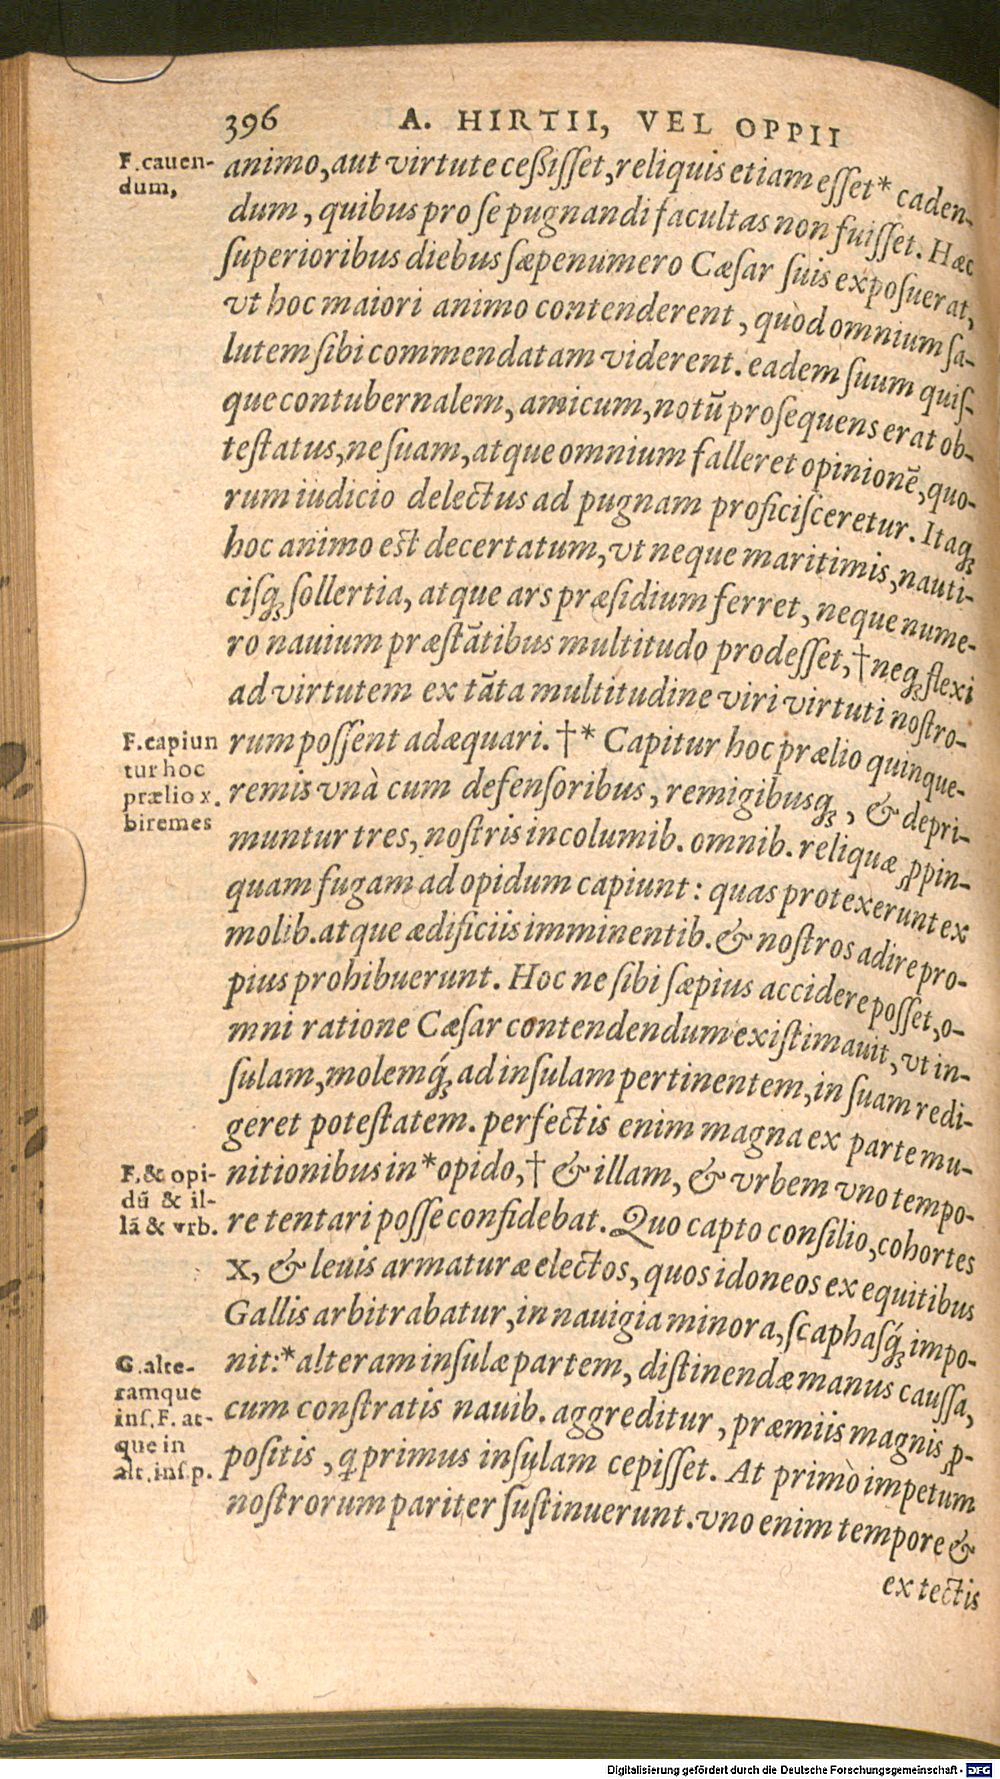 396 A. HIRTII, VEL OPPII
F. cauen-
dum,
animo, aut virtute ceßiſſet, reliquis etiam eſſet* caden-
dum, quibus pro ſe pugnandi facultas non fuiſſet. Hæc
ſuperioribus diebus ſæpenumero Cæſar ſuis expoſuerat,
vt hoc maiori animo contenderent, quòd omnium ſa-
lutem ſibi commendatam viderent. eadem ſuum quiſ-
que contubernalem, amicum, notũ proſequens erat ob-
teſtatus, ne ſuam, atque omnium falleret opinionẽ, quo-
rum iudicio delectus ad pugnam proficiſceretur. Itaq;
hoc animo eſt decertatum, vt neque maritimis, nauti-
ciſq; ſollertia, atque ars præſidium ferret, neque nume-
ro nauium præſtãtibus multitudo prodeſſet, † neq; flexi
ad virtutem ex tãta multitudine viri virtuti noſtro-
rum poſſent adæquari. †* Capitur hoc prælio quinque-
F. capiun
tur hoc
prælio x.
biremes
remis vnà cum defenſoribus, remigibusq;, & depri-
muntur tres, noſtris incolumib. omnib. reliquæ ꝓpin-
quam fugam ad opidum capiunt: quas protexerunt ex
molib. atque ædificiis imminentib. & noſtros adire pro-
pius prohibuerunt. Hoc ne ſibi ſæpius accidere poſſet, o-
mni ratione Cæſar contendendum exiſtimauit, vt in-
ſulam, molemq́;, ad inſulam pertinentem, in ſuam redi-
geret poteſtatem. perfectis enim magna ex parte mu-
F. & opi-
dũ & il-
lã & vrb.
nitionibus in* opido, † & illam, & vrbem vno tempo-
re tentari poſſe confidebat. Quo capto conſilio, cohortes
X, & leuis armaturæ electos, quos idoneos ex equitibus
Gallis arbitrabatur, in nauigia minora, ſcaphaſq́; impo-
G. alte-
ramque
inſ. F. at-
que in
alt. inſ. p.
nit:* alteram inſulæ partem, diſtinendæ manus cauſſa,
cum conſtratis nauib. aggreditur, præmiis magnis ꝓ-
poſitis, q̃ primus inſulam cepiſſet. At primò impetum
noſtrorum pariter ſuſtinuerunt. vno enim tempore &
ex tectis
Digitalisierung gefördert durch die Deutsche Forschungsgemeinschaft - DFG